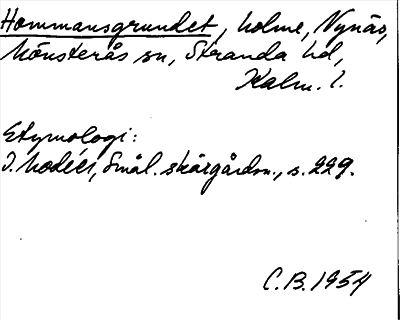 Hommansgrundet, holme, Nynäs,
Mönsterås sn, Stranda hd,
Kalm. l.
Etymologi:
I. Modéer, Smål. skärgårdsn., s. 229.
C.B. 1954